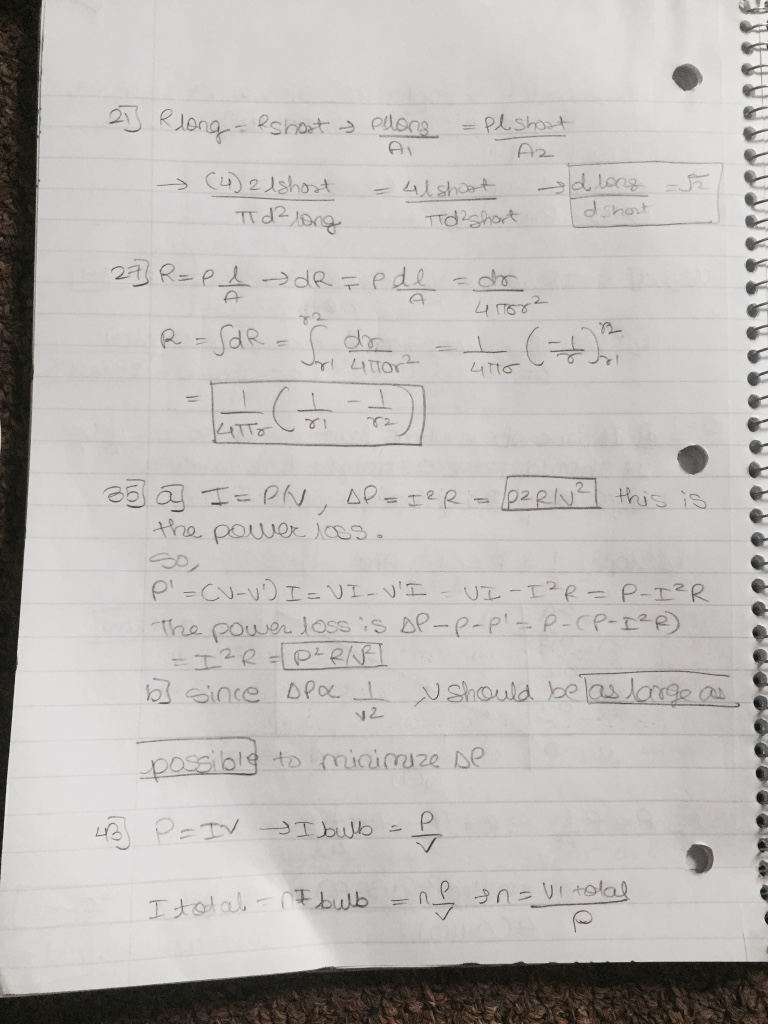 21] R long = R short → ρl long / A1 = ρl short / A2
→ (4) 2 l short / πd² long = 4 l short / πd² short → d long / d short = √2
27] R = ρ l/A → dR = ρ dl/A = dr / 4πσr²
R = ∫dR = ∫ r1 r2 dr / 4πσr² = 1/4πσ (-1/r) r2 r1
= 1/4πσ (1/r1 - 1/r2)
35] a] I = P/V, ΔP = I²R = P²R/V² this is
the power loss.
So,
P' = (V-V')I = VI - V'I = VI - I²R = P - I²R
The power loss is ΔP = P - P' = P - (P - I²R)
= I²R = P²R/V²
b] since ΔP ∝ 1/V², V should be as large as
possible to minimize ΔP
43] P = IV → I bulb = P/V
I total = nI bulb = n P/V → n = VI total / P